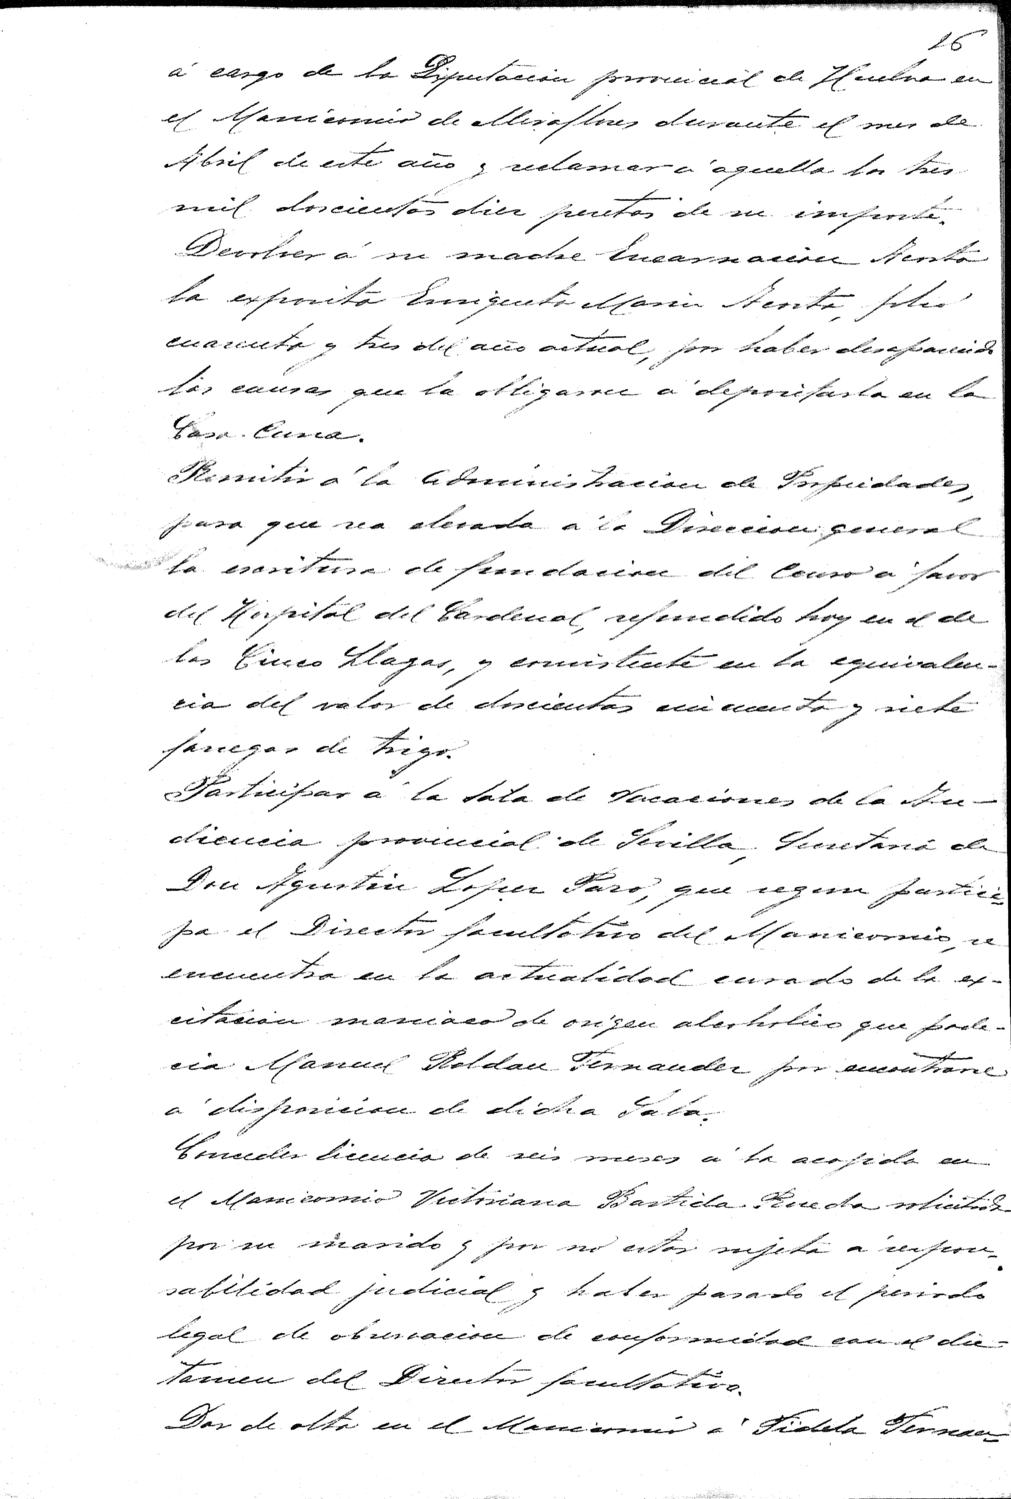 16
á cargo de la Diputacion provincial de Huelva en
el Manicomio de Miraflores durante el mes de
Abril de este año y reclamar á aquella las tres
mil doscientas diez pesetas de su importe.
Devolver á su madre Encarnacion Acosta
la exposita Enriqueta Maria Acosta, folio
cuarenta y tres del año actual, por haber desaparecido
las causas que la obligaron á depositarla en la
Casa-Cuna.
Remitir á la Administracion de Propiedades,
para que sea elevada á la Direccion general
la escritura de fundacion del Censo á favor
del Hospital del Cardenal, refundido hoy en el de
las Cinco Llagas, y consistente en la equivalen-
cia del valor de doscientas cincuenta y siete
fanegas de trigo.
Participar á la Sala de Vacaciones de la Au-
diencia provincial de Sevilla, Secretaria de
Don Agustin Lopez Pazo, que segun partici-
pa el Director facultativo del Manicomio, se
encuentra en la actualidad curado de la ex-
citacion maniaca de origen alcoholico que pade-
cia Manuel Roldan Fernandez por encontrarse
á disposicion de dicha Sala.
Conceder licencia de seis meses á la acogida en
el Manicomio Victoriana Bastida Rueda solicitada
por su marido y por no estar sujeta á respon-
sabilidad judicial y haber pasado el periodo
legal de observacion de conformidad con el dic-
tamen del Director facultativo.
Dar de alta en el Manicomio á Fidela Fernan-